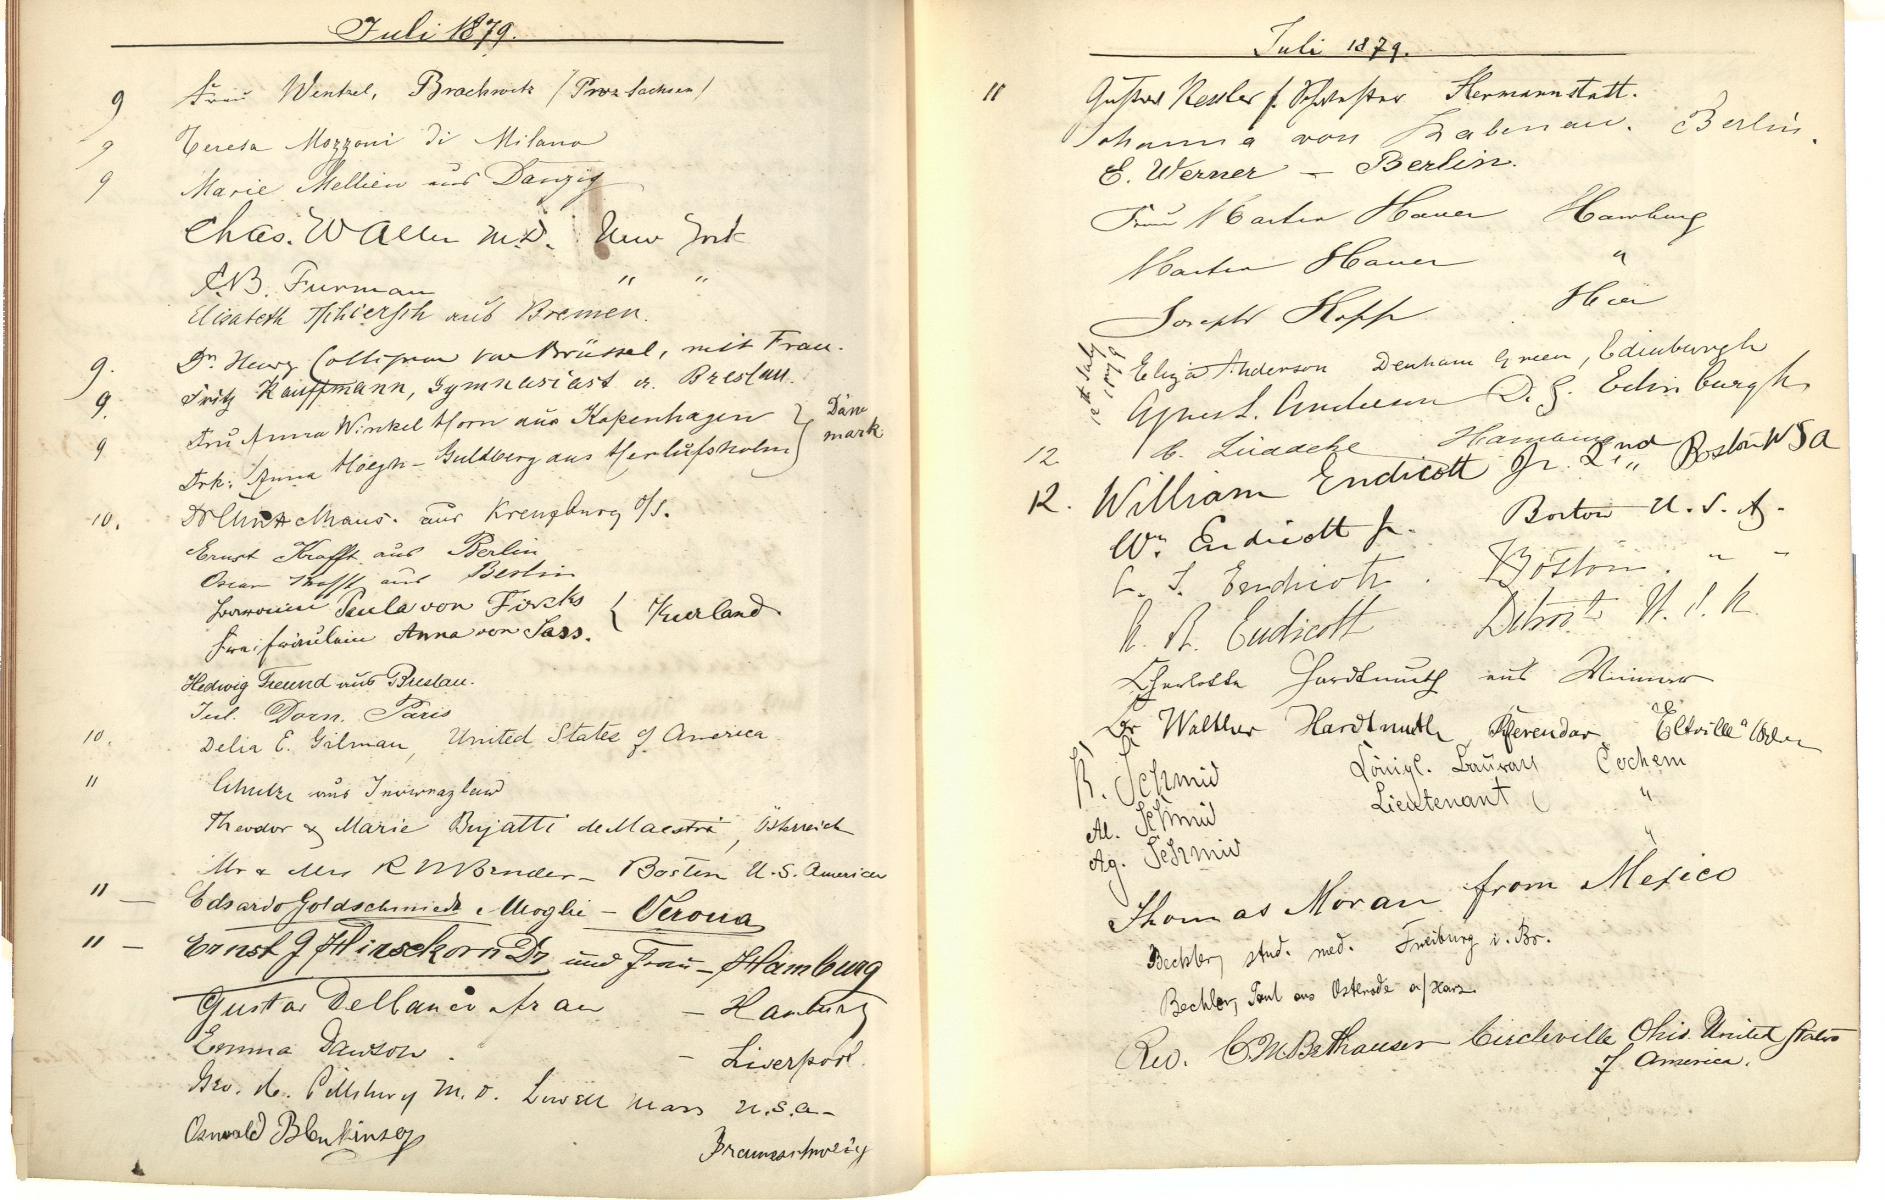 Juli 1879.
9 Frau Wentzel, Brachwitz (Prov Sachsen)
9 Teresa Mozzoni di Milano
9 Marie Mellien aus Danzig
Chas. W Allen M.D. New York
C.B. Furman " "
Elisabeth aus Bremen.
9. Dr. Henry von Brüssel, mit Frau.
9. Fritz Kauffmann, Gymnasiast a. Breslau.
9 Fru Anna Winkel Horn aus Kopenhagen } Däne
Frk: Anna Höegh-Guldberg aus Herlufsholm } mark
10. aus Kreuzburg O/S.
Ernst Krafft aus Berlin
Oscar Krafft aus Berlin
Baronin Paula von Fircks { Kurland
Freifräulein Anna von Sass.
Hedwig Freund aus Breslau.
Jul. Dorn. Paris
10. Delia E. Gilman, United States of America
11 Schulze aus Inowrazlaw
Theodor & Marie Bujatti de Maestri, Österreich
Mr & Mrs R Bender - Boston U.S. America
11 — Edoardo Goldschmiedt e Moglie - Verona
11 — Ernst J Hinsekorn Dr und Frau - Hamburg
Gustav Delbanco & frau - Hamburg
Emma Dawson. - Liverpool.
Geo. H. Pillsbury M.D. Lowell Mass U.S.A-
Oswald Blenkinsop
Braunschweig
Juli 1879.
11 Gustav Kessler Hermannstatt.
Johanna von Rabenau. Berlin.
E. Werner - Berlin.
Frau Martin Hauer Hamburg
Martin Hauer "
Joseph Hopp Hier
12th July 1879
Eliza Anderson Denham Green, Edinburgh
Agnes L. Anderson D. G. Edinburgh
12. C. Luadcke Hamburg
12. William Endicott Jr. 2nd Boston U S A
Wm. Endicott Jr. " Boston U.S.A.
Endicott. Boston. " "
Endicott Detroit U.S.A.
Charlotte Hardtmuth aus
Dr Walther Hardtmuth Referendar "Eltville"
R. Schmid Königl. Baurath Cochem
Al. Schmid Lieutenant "
Ag. Schmid "
Thomas Moran from Mexico
Bechler, stud. med. Freiburg i. Br.
Bechler, Paul aus Osterode a/Harz
Rev. C.M. Bethauser Circleville Ohio United States
of America.